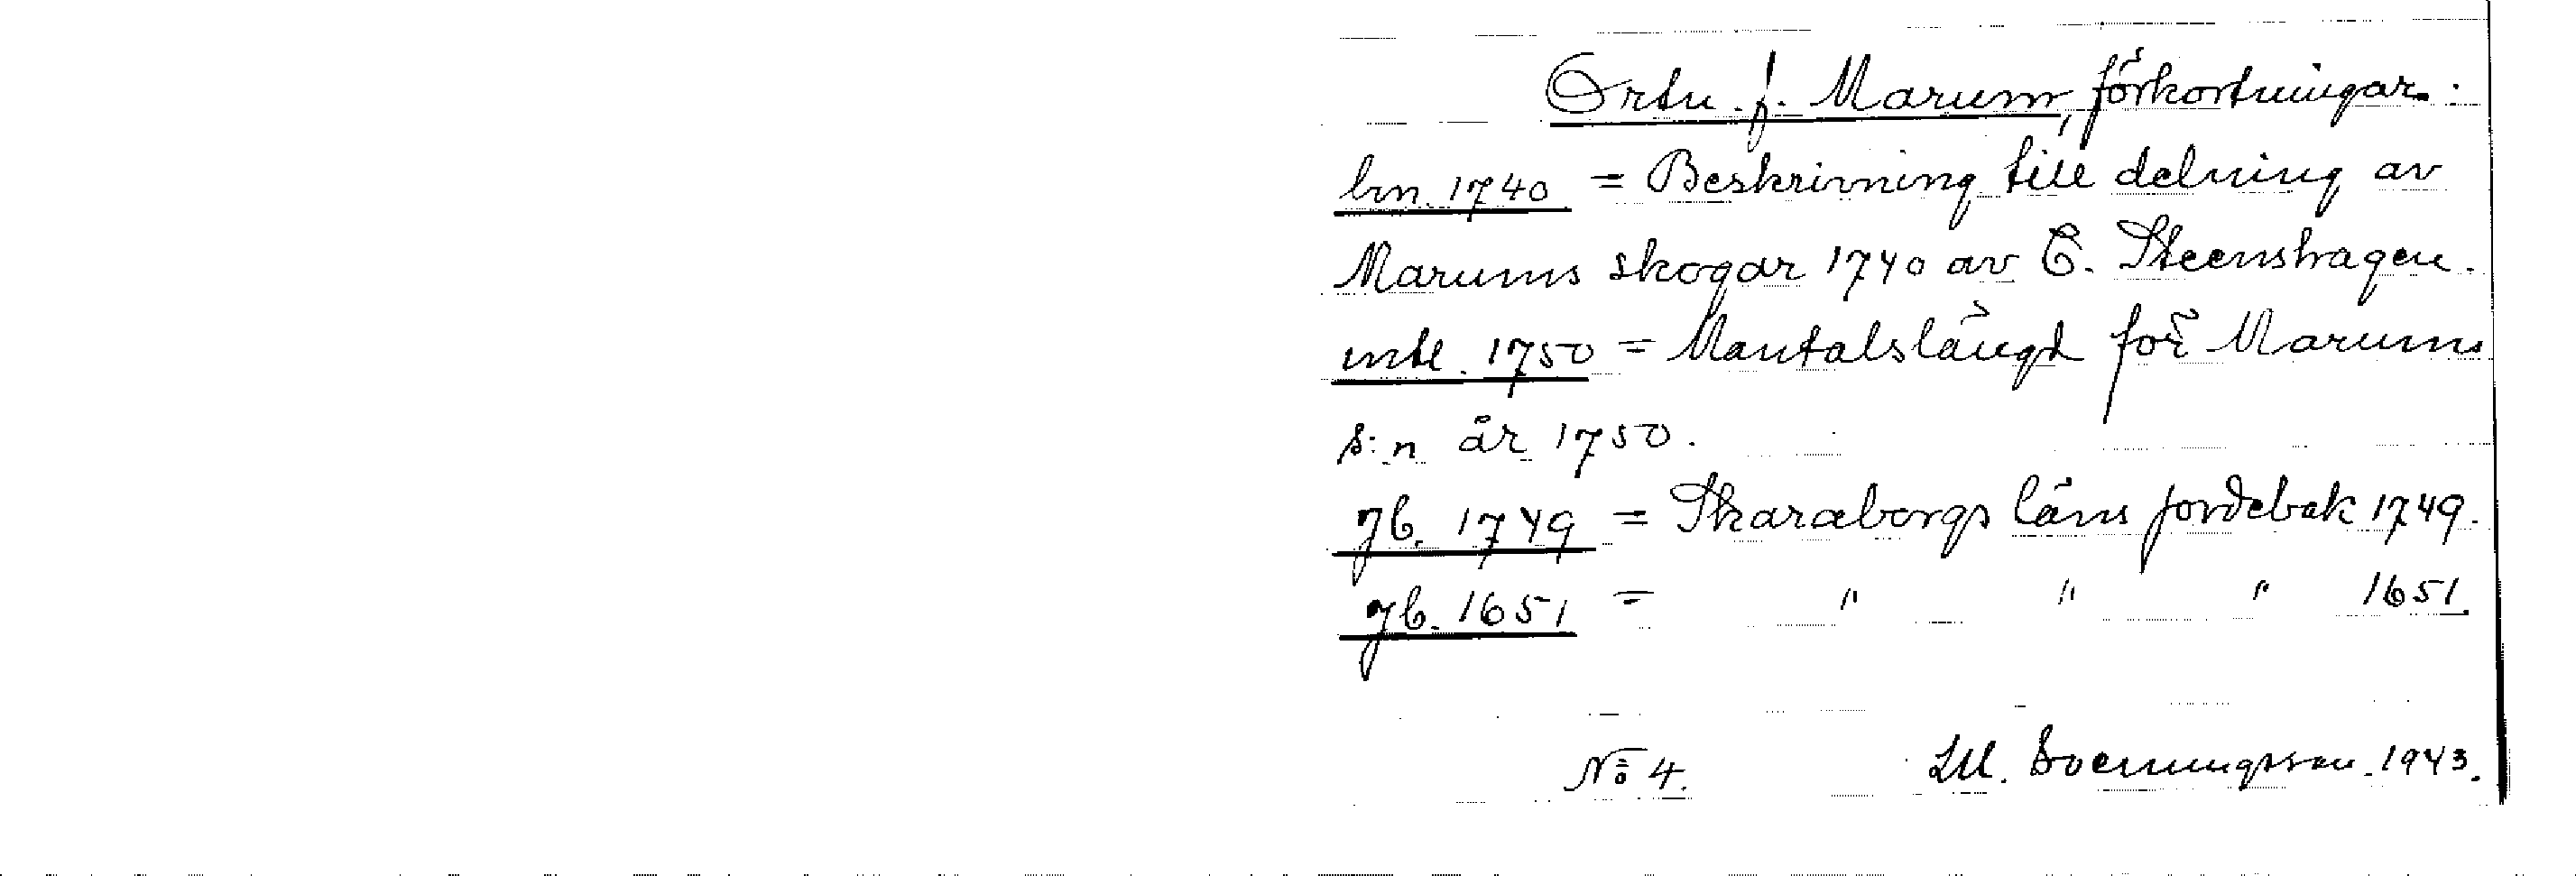 Ortn. f. Marum, förkortningar.
bn. 1740 = Beskrivning till delning av
Marums skogar 1740 av C. Steenshagen.
mtl. 1750 = Mantalslängd för Marums
s:n år 1750.
Jb. 1749 = Skaraborgs läns jordebok 1749.
Jb. 1651 = " " " 1651.
No 4. Svenningsson. 1943.